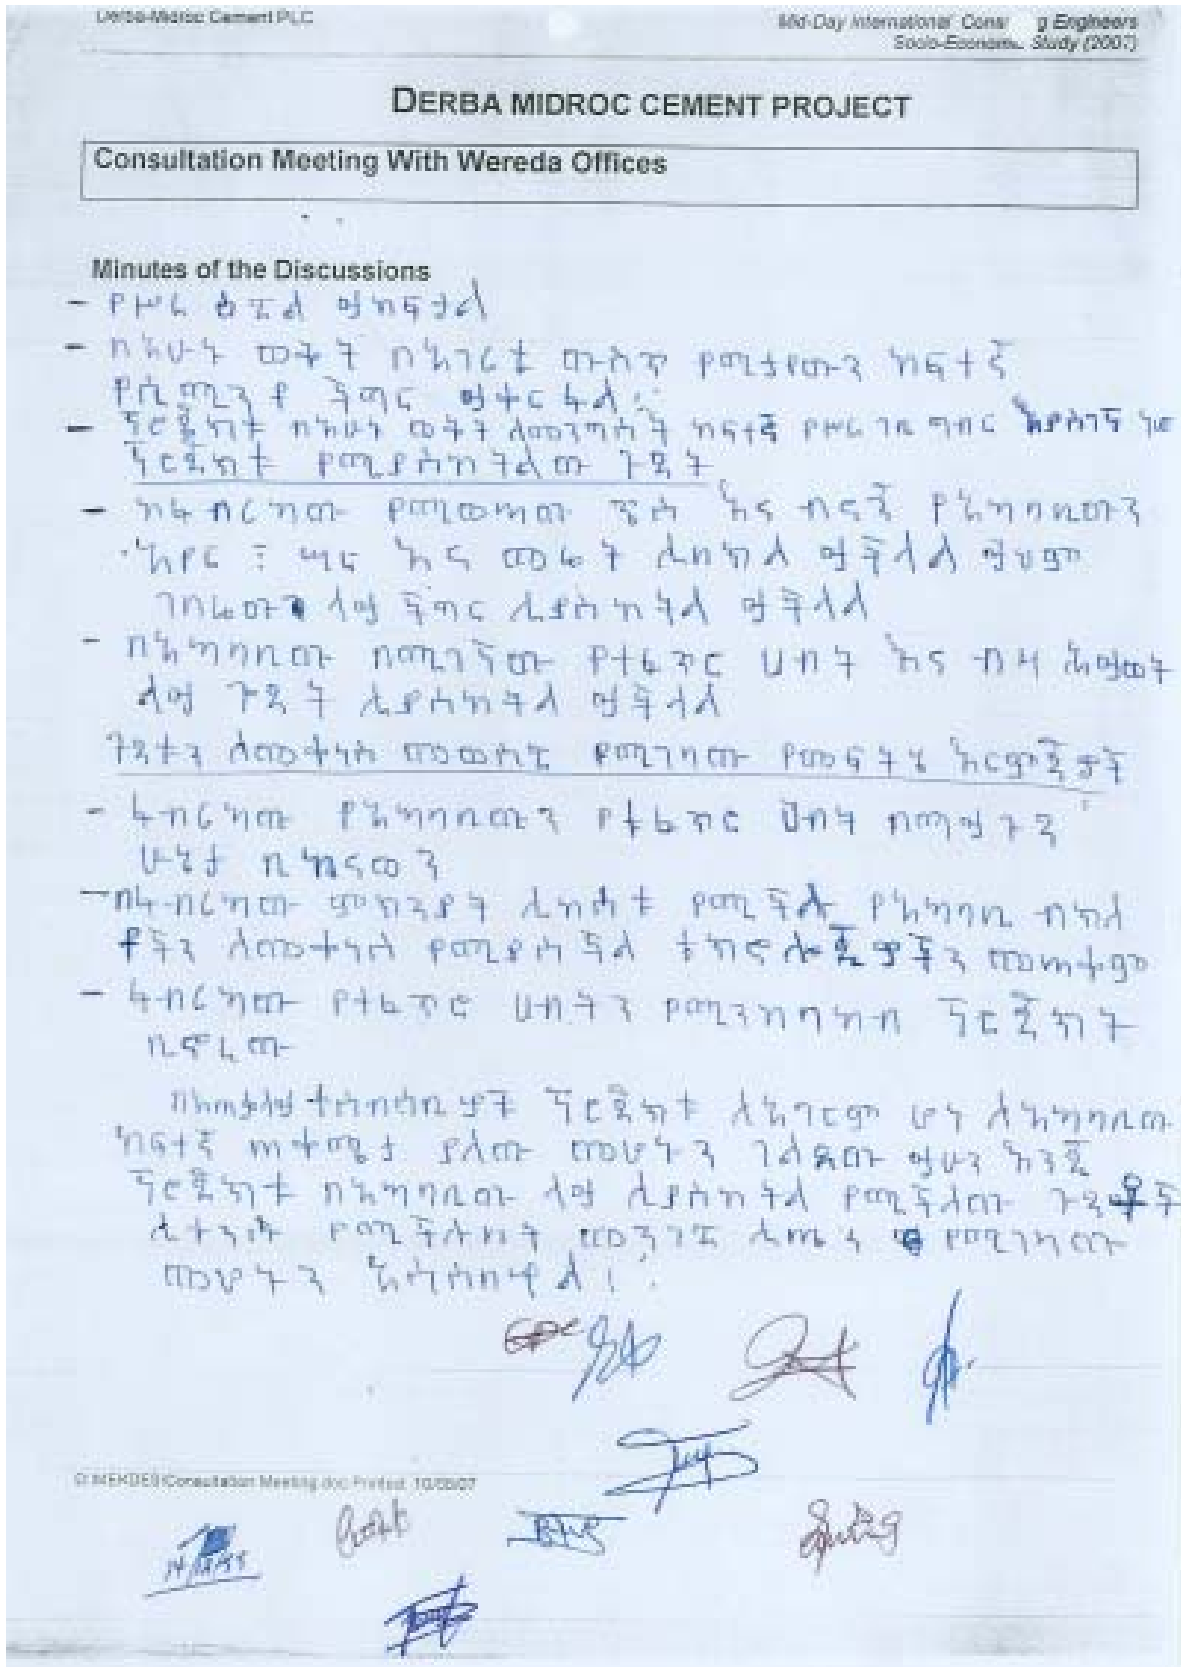 Derba-Midroc Cement PLC
Mid-Day International Engineers
Socio-Economic Study (2007)
DERBA MIDROC CEMENT PROJECT
Consultation Meeting With Wereda Offices
Minutes of the Discussions
- የሥራ ዕድል ይከፍታል
- በአሁኑ ወቅት በአገሪቷ ውስጥ የሚታየውን ከፍተኛ
የሲሚንቶ ችግር ይቀርፋል።
- ፕሮጀክቱ በአሁኑ ወቅት ለመንግስት ከፍተኛ የሥራ
ፕሮጀክቱ የሚያስከትለው ጉዳት
- ከፋብሪካው የሚወጣው ጭስ እና ብናኝ የአካባቢውን
አየር ፣ ዛፍ እና መሬት ሊበክል ይችላል ይህም
ገበሬውን ላይ ችግር ሊያስከትል ይችላል
- በአካባቢው በሚገኘው የተፈጥሮ ሀብት እና ብዛ ሕይወት
ላይ ጉዳት ሊያስከትል ይችላል
ጉዳቱን ለመቀነስ መወሰድ የሚገባው የመፍትሄ እርምጃዎች
- ፋብሪካው የአካባቢውን የተፈጥሮ ሀብት በማይጎዳ
ሁኔታ ቢከናወን
- በፋብሪካው ምክንያት ሊከሰቱ የሚችሉ የአካባቢ ብክለ
ቶችን ለመቀነስ የሚያስችል ቴክኖሎጂዎችን መጠቀም
- ፋብሪካው የተፈጥሮ ሀብትን የሚንከባከብ ፕሮጀክት
ቢኖረው
በአጠቃላይ ተሰብሳቢዎች ፕሮጀክቱ ለአገርም ሆነ ለአካባቢው
ከፍተኛ ጠቀሜታ ያለው መሆኑን ገልፀው ይሁን እንጂ
ፕሮጀክቱ በአካባቢው ላይ ሊያስከትል የሚችለው ጉዳቶች
ሊቀንሱ የሚችሉበት መንገድ የሚገባው
መሆኑን አሳስበዋል።
Consultation Meeting.doc Printed 10/05/07